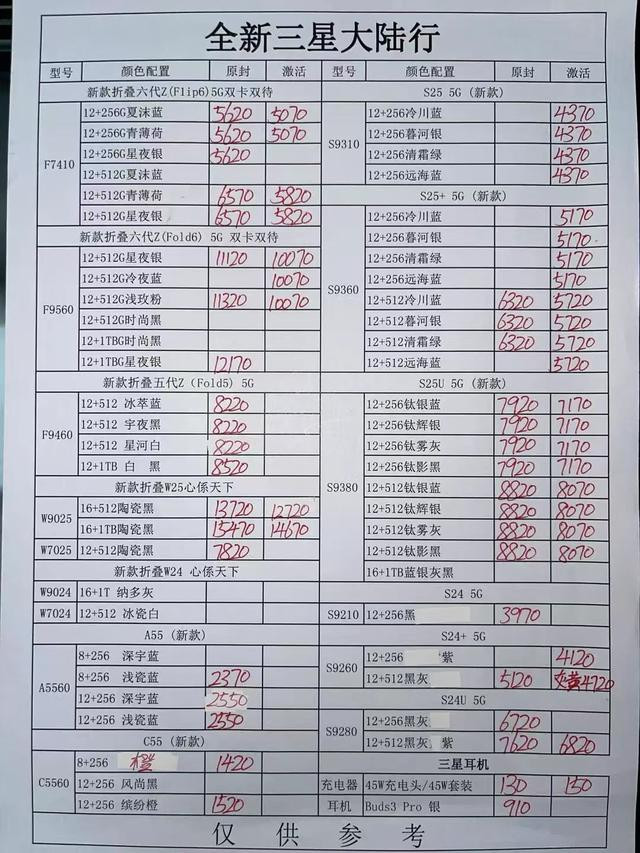 全新三星大陆行
型号 颜色配置 原封 激活
新款折叠六代Z(Flip6)5G双卡双待
F7410
12+256G夏沫蓝 5620 5070
12+256G青薄荷 5620 5070
12+256G星夜银 5620
12+512G夏沫蓝
12+512G青薄荷 6570 5820
12+512G星夜银 6570 5820
新款折叠六代Z(Fold6) 5G 双卡双待
F9560
12+512G星夜银 11120 10070
12+512G冷夜蓝 10070
12+512G浅玫粉 11320 10070
12+512G时尚黑
12+1TBG时尚黑
12+1TBG星夜银 12170
新款折叠五代Z (Fold5) 5G
F9460
12+512 冰萃蓝 8220
12+512 宇夜黑 8220
12+512 星河白 8220
12+1TB 白 黑 8520
新款折叠W25心係天下
W9025
16+512陶瓷黑 13720 12720
16+1TB陶瓷黑 15470 14670
W7025 12+512陶瓷黑 7820
新款折叠W24 心係天下
W9024 16+1T 纳多灰
W7024 12+512 冰瓷白
A55 (新款)
A5560
8+256 深宇蓝
8+256 浅瓷蓝 2370
12+256 深宇蓝 2550
12+256 浅瓷蓝 2550
C55 (新款)
C5560
8+256 橙 1420
12+256 风尚黑
12+256 缤纷橙 1520
型号 颜色配置 原封 激活
S25 5G (新款)
S9310
12+256冷川蓝 4370
12+256暮河银 4370
12+256清霜绿 4370
12+256远海蓝 4370
S25+ 5G (新款)
S9360
12+256冷川蓝 5170
12+256暮河银 5170
12+256清霜绿 5170
12+256远海蓝 5170
12+512冷川蓝 6320 5720
12+512暮河银 6320 5720
12+512清霜绿 6320 5720
12+512远海蓝 5720
S25U 5G (新款)
S9380
12+256钛银蓝 7920 7170
12+256钛辉银 7920 7170
12+256钛雾灰 7920 7170
12+256钛影黑 7920 7170
12+512钛银蓝 8820 8070
12+512钛辉银 8820 8070
12+512钛雾灰 8820 8070
12+512钛影黑 8820 8070
16+1TB蓝银灰黑
S24 5G
S9210 12+256黑 3970
S24+ 5G
S9260
12+256 紫 4120
12+512黑灰 5120 黄4720
S24U 5G
S9280
12+256黑灰 6720
12+512黑灰 紫 7620 6820
三星耳机
充电器 45W充电头/45W套装 130 150
耳机 Buds3 Pro 银 910
仅供参考